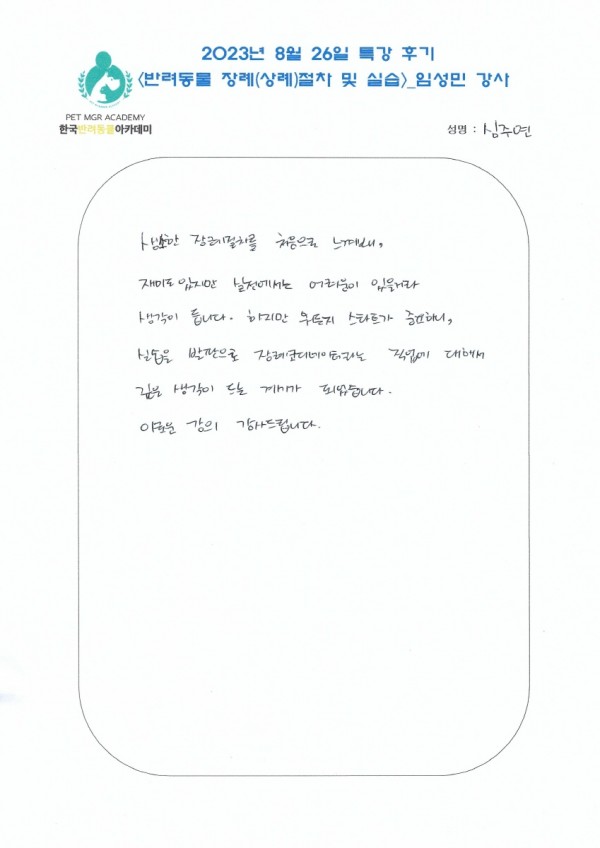 2023년 8월 26일 특강 후기
<반려동물 장례(상례)절차 및 실습>_임성민 강사
PET MGR ACADEMY
한국반려동물아카데미
성명 : 심주연
장례절차를 처음으로
재미도 있지만 실전에서는 어려움이 있을거라
생각이 듭니다. 하지만 뭐든지 스타트가 중요하니,
실습을 발판으로 장례코디네이터라는 직업에 대해서
깊은 생각이 드는 계기가 되었습니다.
이로운 강의 감사드립니다.